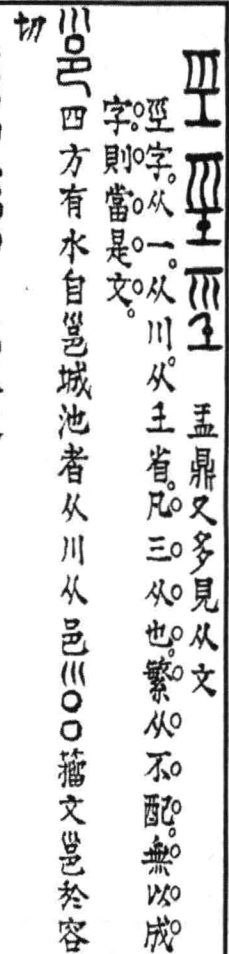 巠 巠 巠 盂鼎又多見从文
巠字。从一。从川。从王省。凡三从也。繁从不配。無以成
字。則當是文。
邕 四方有水自邕城池者从川从邑 𡿭 籒文邕於容
切